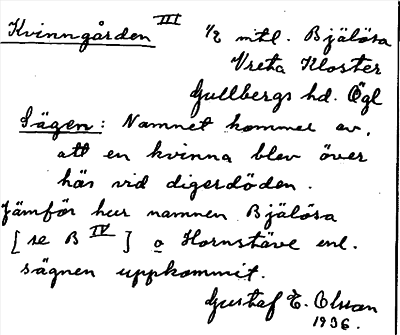 Kvinngården III 1/2 mtl. Bjälösa
Vreta Kloster
Gullbergs hd. Ögl
Sägen: Namnet kommer av,
att en kvinna blev över
här vid digerdöden.
Jämför hur namnen Bjälösa
[se B IV] o Hornstäve enl.
sägnen uppkommit.
Gustaf E. Olsson
1936.